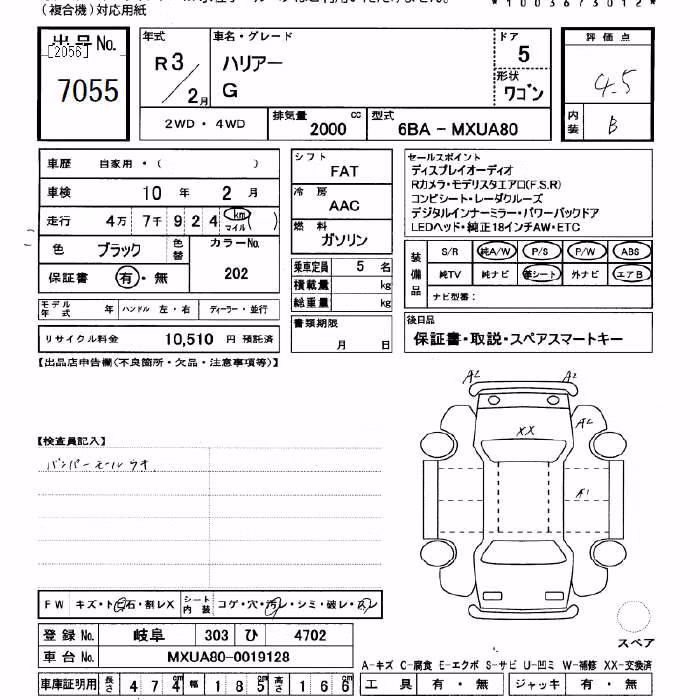 (複合機)対応用紙
*10036730 12*
出品No. [2056] 7055
年式 R3/2月
車名・グレード ハリアー G
ドア 5
形状 ワゴン
評価点 4.5
内装 B
2WD・4WD
排気量 2000 cc
型式 6BA-MXUA80
車歴 自家用・( )
車検 10年 2月
走行 4万 7千 9 2 4 km マイル
色 ブラック 色替 カラーNo. 202
保証書 有・無
モデル年式 年 ハンドル 左・右 ディーラー・並行
リサイクル料金 10,510 円 預託済
シフト FAT
冷房 AAC
燃料 ガソリン
乗車定員 5 名
積載量 kg
総重量 kg
書類期限 月 日
セールスポイント
ディスプレイオーディオ
Rカメラ・モデリスタエアロ(F.S.R)
コンビシート・レーダクルーズ
デジタルインナーミラー・パワーバックドア
LEDヘッド・純正18インチAW・ETC
装備品 S/R 純A/W P/S P/W ABS
純TV 純ナビ 革シート 外ナビ エアB
ナビ型番:
後日品
保証書・取説・スペアスマートキー
【出品店申告欄(不良箇所・欠品・注意事項等)】
【検査員記入】
バンパーモールウオ
A2 A2
A2
XX
A1
FW キズ・ト石・割レX シート内装 コゲ・穴・汚レ・シミ・破レ・
登録No. 岐阜 303 ひ 4702
車台No. MXUA80-0019128
スペア
A-キズ C-腐食 E-エクボ S-サビ U-凹ミ W-補修 XX-交換済
車庫証明用 長さ 4 7 4cm 幅 1 8 5cm 高さ 1 6 6cm 工具 有・無 ジャッキ 有・無